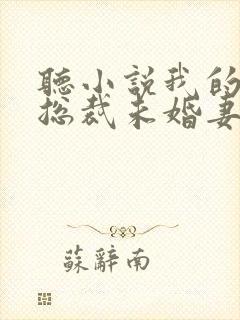 聽小說我的
總裁未婚妻
蘇辭南